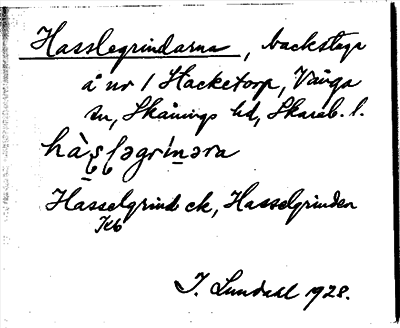 Hasslegrindarna, backstuga
å nr 1 Hacketorp, Vånga
sn, Skånings hd, Skarab. l.
hàʂlˌəgrinəra
Hasselgrind ek, Hasselgrinden
Kb
I. Lundahl 1928.